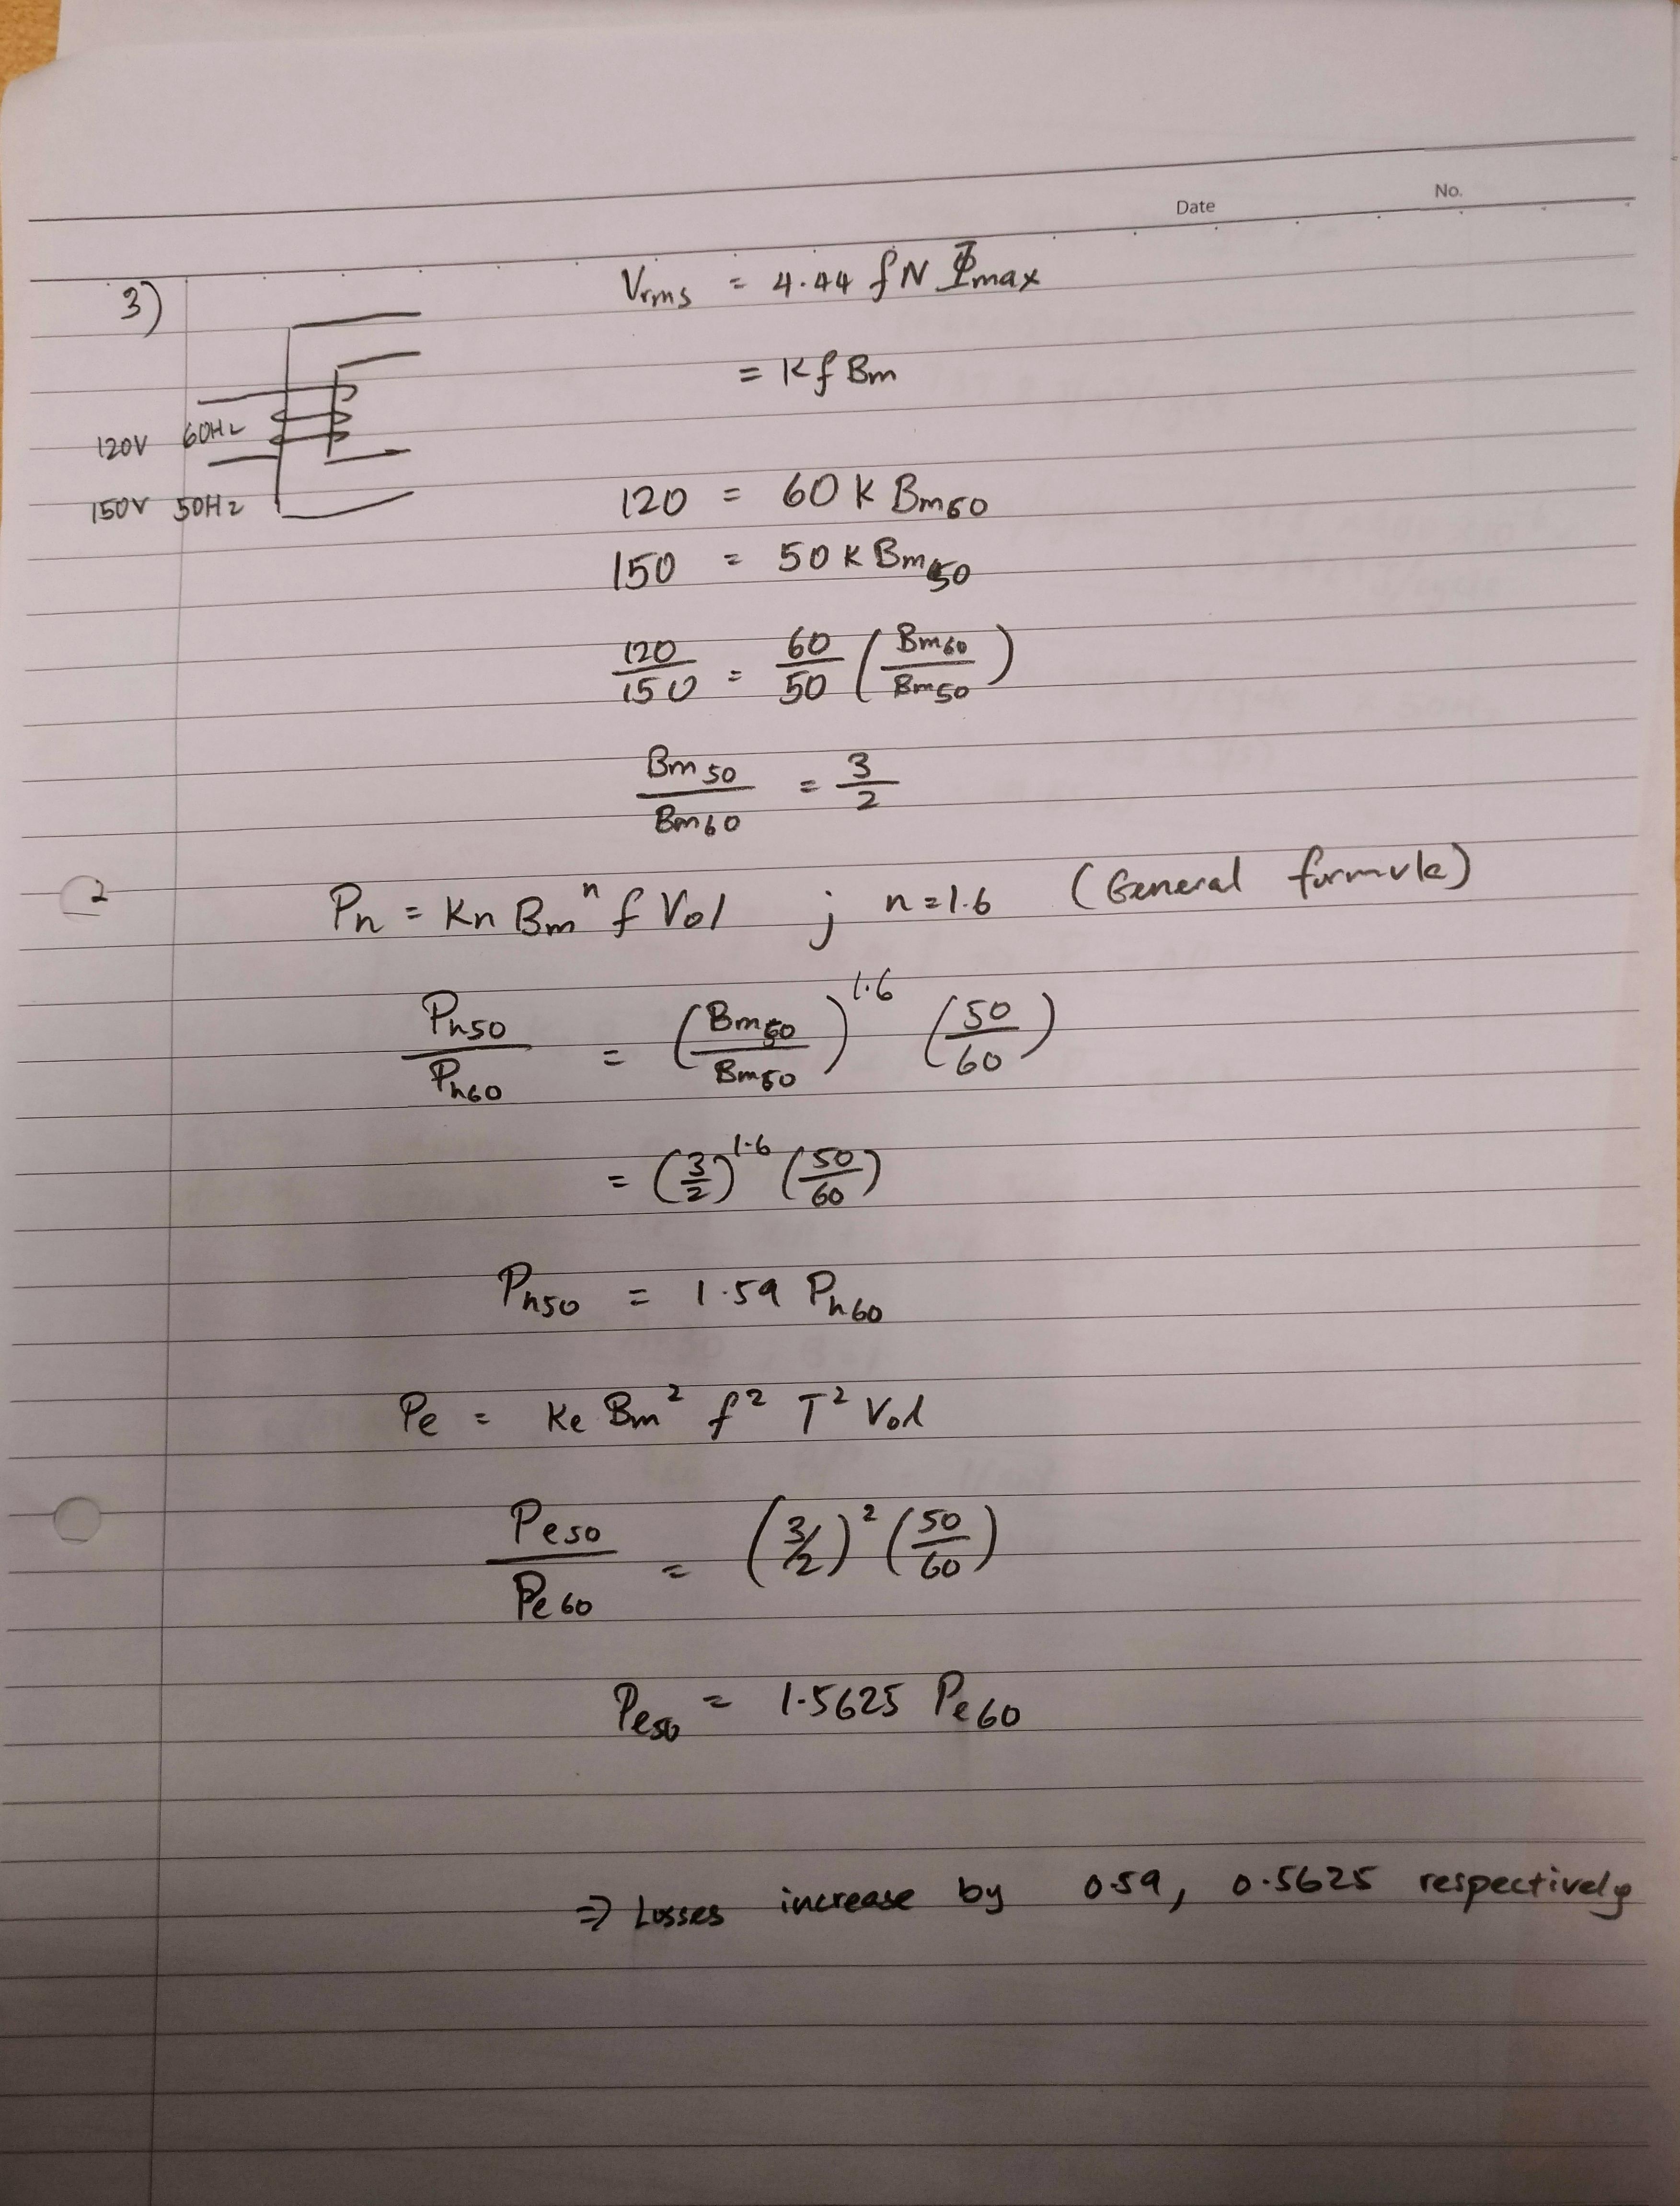 Date
No.
3)
Vrms = 4.44 f N Φmax
= K f Bm
120V 60Hz
150V 50Hz
120 = 60 K Bm60
150 = 50 K Bm50
120/150 = 60/50 (Bm60/Bm50)
Bm50/Bm60 = 3/2
2
Ph = Kn Bm^n f Vol ; n=1.6 (General formula)
Ph50/Ph60 = (Bm50/Bm60)^1.6 (50/60)
= (3/2)^1.6 (50/60)
Ph50 = 1.59 Ph60
Pe = Ke Bm² f² T² Vol
Pe50/Pe60 = (3/2)² (50/60)
Pe50 = 1.5625 Pe60
⇒ Losses increase by 0.59, 0.5625 respectively